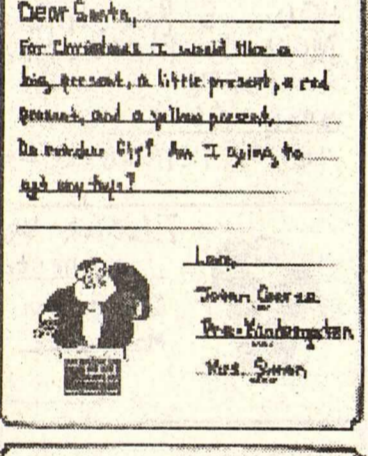 Dear Santa,
For Christmas I would like a
big present, a little present, a red
present, and a yellow present.
Do reindeer fly? Am I going to
get any toys?
Love,
Pre-Kindergarten
Mrs.